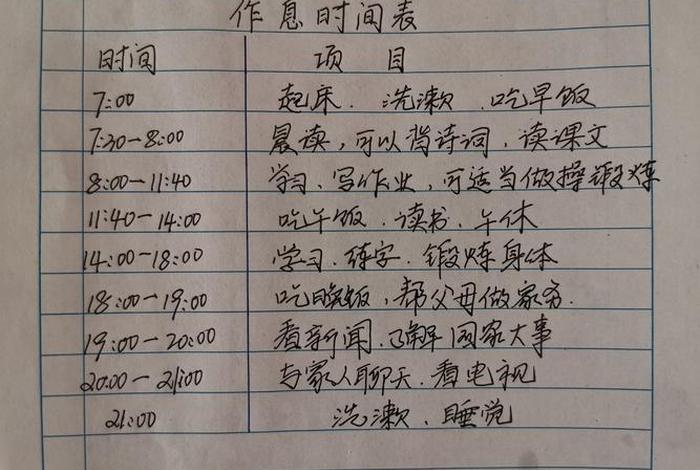 作息时间表
时间 项目
7:00 起床．洗漱．吃早饭
7:30-8:00 晨读，可以背诗词，读课文
8:00-11:40 学习、写作业，可适当做操锻炼
11:40-14:00 吃午饭．读书．午休
14:00-18:00 学习．练字．锻炼身体
18:00-19:00 吃晚饭，帮父母做家务．
19:00-20:00 看新闻．了解国家大事
20:00-21:00 与家人聊天．看电视
21:00 洗漱、睡觉